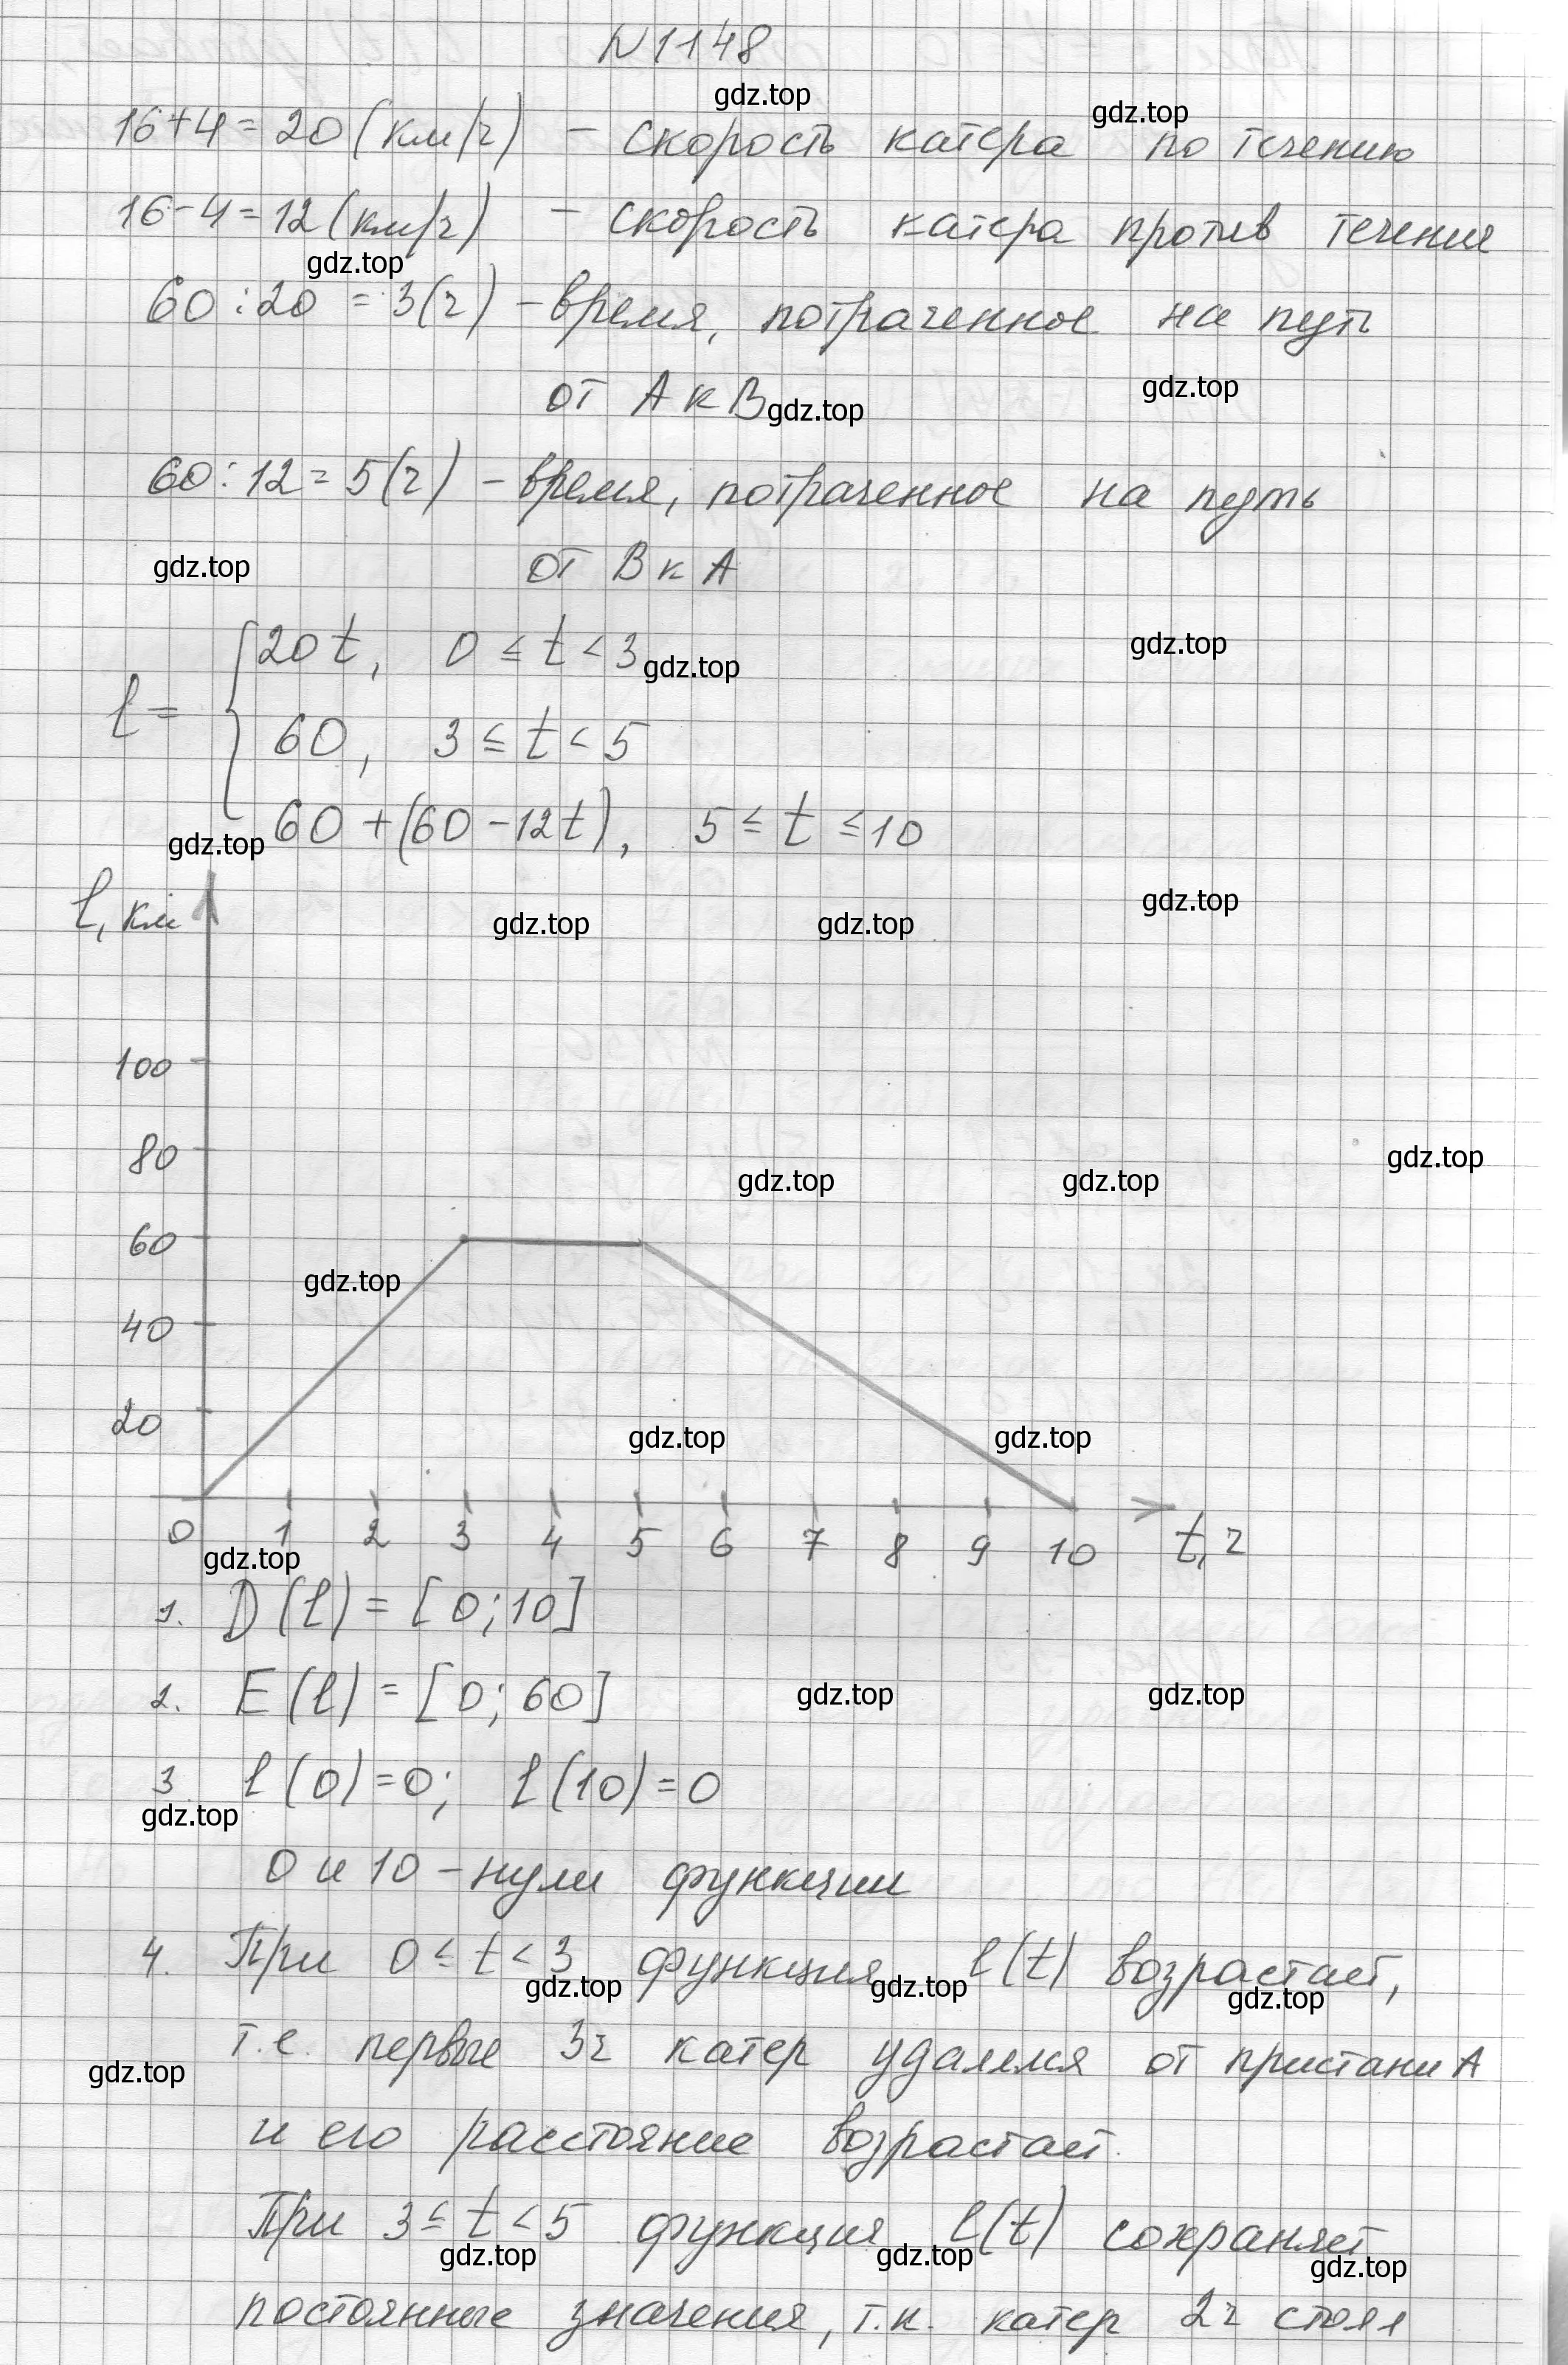 N 1148
gdz.top
gdz.top
16+4=20 (км/ч) – скорость катера по течению
16-4=12 (км/ч) – скорость катера против течения
gdz.top
60:20 = 3(ч) – время, потраченное на путь
gdz.top
от А к В gdz.top
60:12=5(ч) – время, потраченное на путь
gdz.top от В к А
20t, 0 ≤ t < 3 gdz.top gdz.top
l =
60, 3 ≤ t < 5
gdz.top 60+(60-12t), 5 ≤ t ≤ 10
l, км gdz.top gdz.top gdz.top
100
80 gdz.top gdz.top gdz.top
60
gdz.top
40
20 gdz.top gdz.top
0 1 2 3 4 5 6 7 8 9 10 t, ч
gdz.top
1. D(l) = [0;10]
2. E(l) = [0;60] gdz.top gdz.top
3 l(0)=0; l(10)=0
gdz.top
0 и 10 – нули функции
4. При 0 ≤ t < 3 функция l(t) возрастает,
gdz.top gdz.top gdz.top
т.е. первые 3ч катер удалялся от пристани А
gdz.top
и его расстояние возрастает.
При 3 ≤ t < 5 функция l(t) сохраняет
gdz.top gdz.top gdz.top
постоянные значения, т.к. катер 2ч стоял